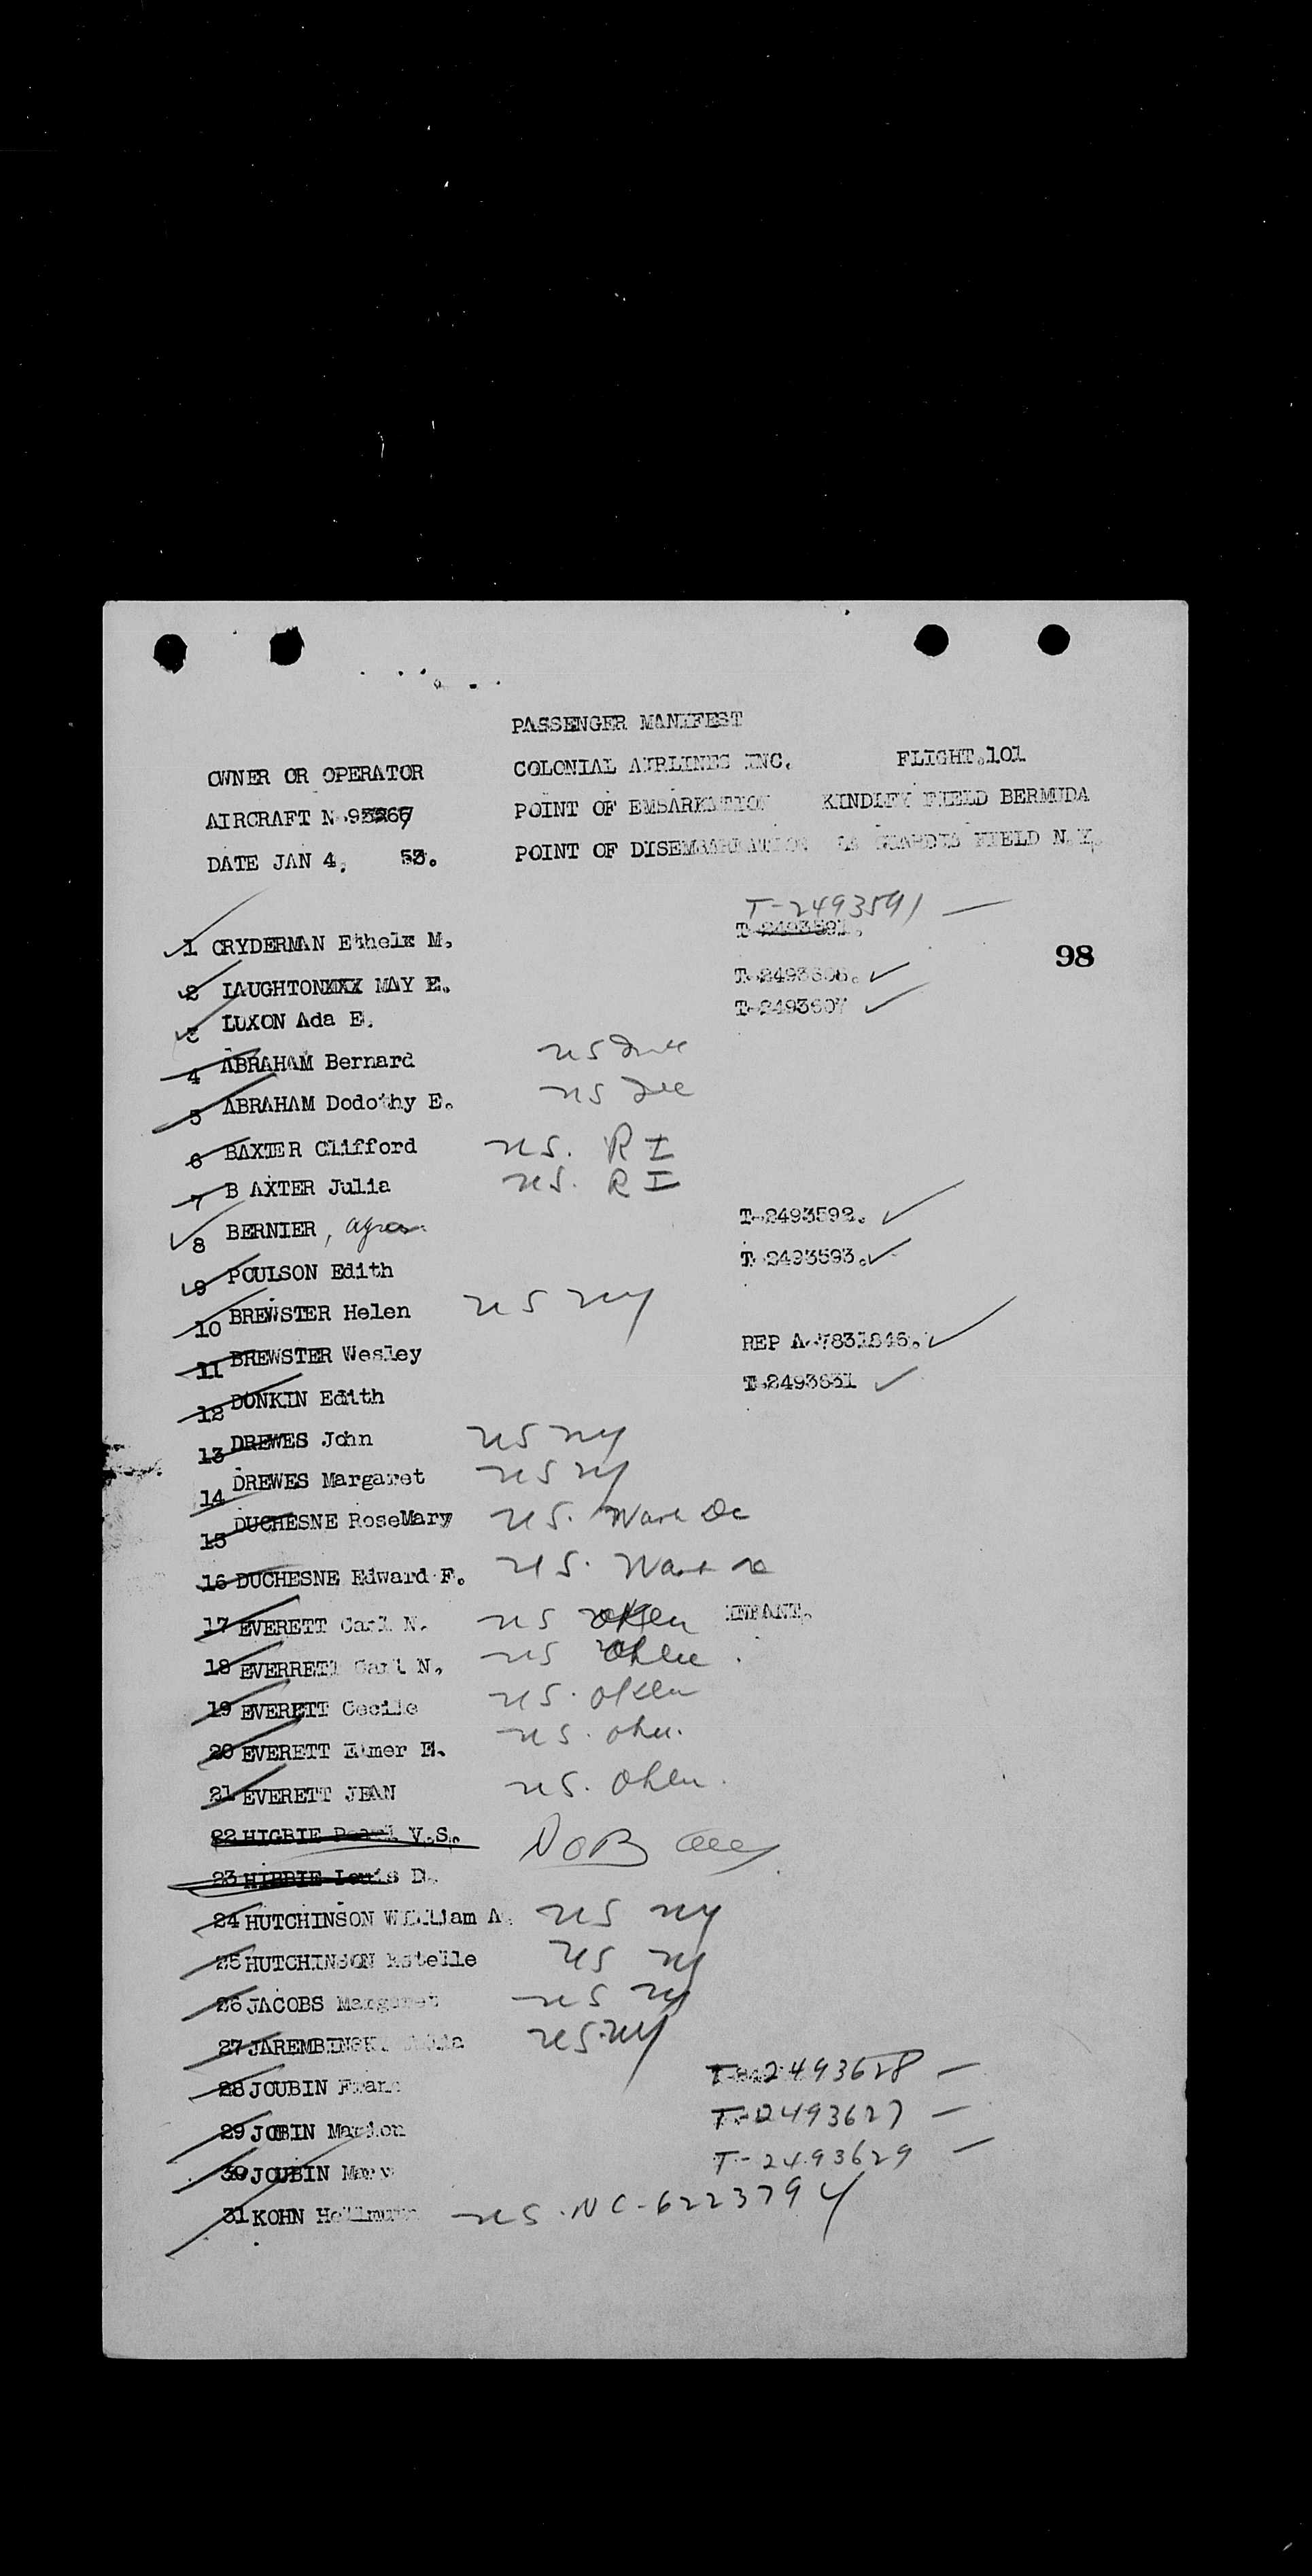 PASSENGER MANIFEST
OWNER OR OPERATOR COLONIAL AIRLINES INC. FLIGHT.101
AIRCRAFT N POINT OF EMBARKATION KINDLEY FIELD BERMUDA
DATE JAN 4, 53. POINT OF DISEMBARKATION LA GUARDIA FIELD N.Y.
T-2493591 —
1 CRYDERMAN M. T-2493591.
98
2 LAUGHTONXXX MAY E. T-2493606.
3 LUXON Ada E. T-2493607
4 ABRAHAM Bernard US
5 ABRAHAM Dodothy E. US
6 BAXTER Clifford US. RI
7 B AXTER Julia US. RI
8 BERNIER, T-2493592.
9 POULSON Edith T-2493593.
10 BREWSTER Helen US NY
11 BREWSTER Wesley REP A-7831846.
12 DONKIN Edith T-2493631
13 DREWES John US NY
14 DREWES Margaret US NY
15 DUCHESNE RoseMary US. Wash DC
16 DUCHESNE Edward F. US. Wash DC
17 EVERETT Carl N. US INFANT.
18 EVERRETT Carl N. US
19 EVERETT Cecile US.
20 EVERETT Elmer E. US.
21 EVERETT JEAN US.
22 HIGBIE V.S. NOB
23 HIBBIE Louis D.
24 HUTCHINSON William A. US NY
25 HUTCHINSON Estelle US NY
26 JACOBS Margaret US NY
27 US. NY
28 JOUBIN T-2493628 —
29 JOBIN Marion T-2493627 —
30 JOUBIN Mary T-2493629 —
31 KOHN US. NC-6223794